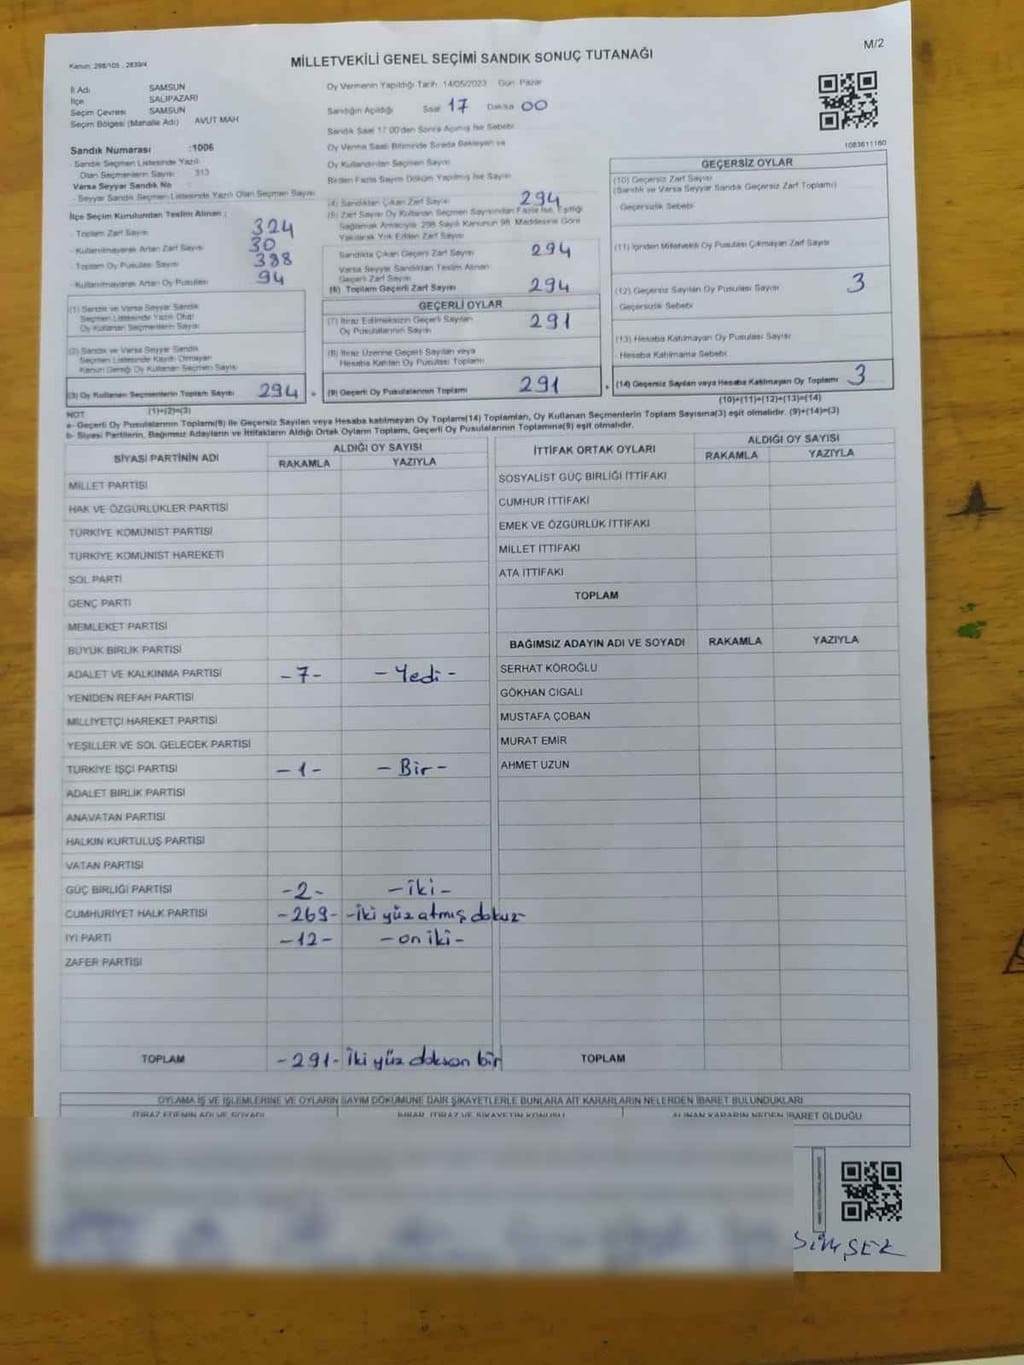 Kanun: 298/105 , 2839/4
M/2
MİLLETVEKİLİ GENEL SEÇİMİ SANDIK SONUÇ TUTANAĞI
İl Adı SAMSUN
İlçe SALIPAZARI
Seçim Çevresi SAMSUN
Seçim Bölgesi (Mahalle Adı) AVUT MAH
Sandık Numarası :1006
Sandık Seçmen Listesinde Yazılı
Olan Seçmenlerin Sayısı : 313
Varsa Seyyar Sandık No
- Seyyar Sandık Seçmen Listesinde Yazılı Olan Seçmen Sayısı
İlçe Seçim Kurulundan Teslim Alınan :
- Toplam Zarf Sayısı 324
- Kullanılmayarak Artan Zarf Sayısı 30
- Toplam Oy Pusulası Sayısı 388
- Kullanılmayarak Artan Oy Pusulası 94
(1) Sandık ve Varsa Seyyar Sandık
Seçmen Listesinde Yazılı Olup
Oy Kullanan Seçmenlerin Sayısı
(2) Sandık ve Varsa Seyyar Sandık
Seçmen Listesinde Kayıtlı Olmayan
Kanun Gereği Oy Kullanan Seçmen Sayısı
(3) Oy Kullanan Seçmenlerin Toplam Sayısı 294 =
(1)+(2)=(3)
Oy Vermenin Yapıldığı Tarih 14/05/2023 Gün Pazar
Sandığın Açıldığı Saat 17 Dakika 00
Sandık Saat 17:00'den Sonra Açılmış İse Sebebi
Oy Verme Saati Bitiminde Sırada Bekleyen ve
Oy Kullandırılan Seçmen Sayısı
Birden Fazla Sayım Döküm Yapılmış İse Sayısı
(4) Sandıktan Çıkan Zarf Sayısı 294
(5) Zarf Sayısı Oy Kullanan Seçmen Sayısından Fazla İse, Eşitliği
Sağlamak Amacıyla, 298 Sayılı Kanunun 98. Maddesine Göre
Yakılarak Yok Edilen Zarf Sayısı
Sandıkta Çıkan Geçerli Zarf Sayısı 294
Varsa Seyyar Sandıktan Teslim Alınan
Geçerli Zarf Sayısı
(6) Toplam Geçerli Zarf Sayısı 294
GEÇERLİ OYLAR
(7) İtiraz Edilmeksizin Geçerli Sayılan
Oy Pusulalarının Sayısı 291
(8) İtiraz Üzerine Geçerli Sayılan veya
Hesaba Katılan Oy Pusulası Toplamı
(9) Geçerli Oy Pusulalarının Toplamı 291 +
1083611160
GEÇERSİZ OYLAR
(10) Geçersiz Zarf Sayısı
(Sandık ve Varsa Seyyar Sandık Geçersiz Zarf Toplamı)
Geçersizlik Sebebi
(11) İçinden Milletvekili Oy Pusulası Çıkmayan Zarf Sayısı
(12) Geçersiz Sayılan Oy Pusulası Sayısı 3
Geçersizlik Sebebi
(13) Hesaba Katılmayan Oy Pusulası Sayısı
Hesaba Katılmama Sebebi
(14) Geçersiz Sayılan veya Hesaba Katılmayan Oy Toplamı 3
(10)+(11)+(12)+(13)=(14)
NOT
a- Geçerli Oy Pusulalarının Toplamı(9) ile Geçersiz Sayılan veya Hesaba katılmayan Oy Toplamı(14) Toplamları, Oy Kullanan Seçmenlerin Toplam Sayısına(3) eşit olmalıdır. (9)+(14)=(3)
b- Siyasi Partilerin, Bağımsız Adayların ve İttifakların Aldığı Ortak Oyların Toplamı, Geçerli Oy Pusulalarının Toplamına(9) eşit olmalıdır.
SİYASİ PARTİNİN ADI ALDIĞI OY SAYISI
RAKAMLA YAZIYLA
MİLLET PARTİSİ
HAK VE ÖZGÜRLÜKLER PARTİSİ
TÜRKİYE KOMÜNİST PARTİSİ
TÜRKİYE KOMÜNİST HAREKETİ
SOL PARTİ
GENÇ PARTİ
MEMLEKET PARTİSİ
BÜYÜK BİRLİK PARTİSİ
ADALET VE KALKINMA PARTİSİ -7- -Yedi-
YENİDEN REFAH PARTİSİ
MİLLİYETÇİ HAREKET PARTİSİ
YEŞİLLER VE SOL GELECEK PARTİSİ
TÜRKİYE İŞÇİ PARTİSİ -1- -Bir-
ADALET BİRLİK PARTİSİ
ANAVATAN PARTİSİ
HALKIN KURTULUŞ PARTİSİ
VATAN PARTİSİ
GÜÇ BİRLİĞİ PARTİSİ -2- -iki-
CUMHURİYET HALK PARTİSİ -269- -iki yüz atmış dokuz-
İYİ PARTİ -12- -on iki-
ZAFER PARTİSİ
TOPLAM -291- iki yüz doksan bir
İTTİFAK ORTAK OYLARI ALDIĞI OY SAYISI
RAKAMLA YAZIYLA
SOSYALİST GÜÇ BİRLİĞİ İTTİFAKI
CUMHUR İTTİFAKI
EMEK VE ÖZGÜRLÜK İTTİFAKI
MİLLET İTTİFAKI
ATA İTTİFAKI
TOPLAM
BAĞIMSIZ ADAYIN ADI VE SOYADI RAKAMLA YAZIYLA
SERHAT KÖROĞLU
GÖKHAN CIGALI
MUSTAFA ÇOBAN
MURAT EMİR
AHMET UZUN
TOPLAM
OYLAMA İŞ VE İŞLEMLERİNE VE OYLARIN SAYIM DÖKÜMÜNE DAİR ŞİKAYETLERLE BUNLARA AİT KARARLARIN NELERDEN İBARET BULUNDUKLARI
İTİRAZ EDENİN ADI VE SOYADI İHBAR, İTİRAZ VE ŞİKAYETİN KONUSU ALINAN KARARIN NEDEN İBARET OLDUĞU
ŞİMŞEK